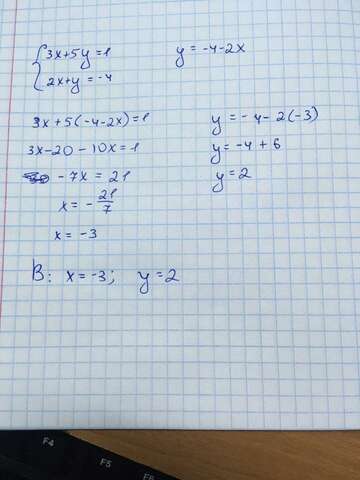 3x+5y=1
2x+y=-4
y=-4-2x
3x+5(-4-2x)=1
3x-20-10x=1
-7x=21
x=-21/7
x=-3
y=-4-2(-3)
y=-4+6
y=2
В: x=-3; y=2
F4
F5
F6